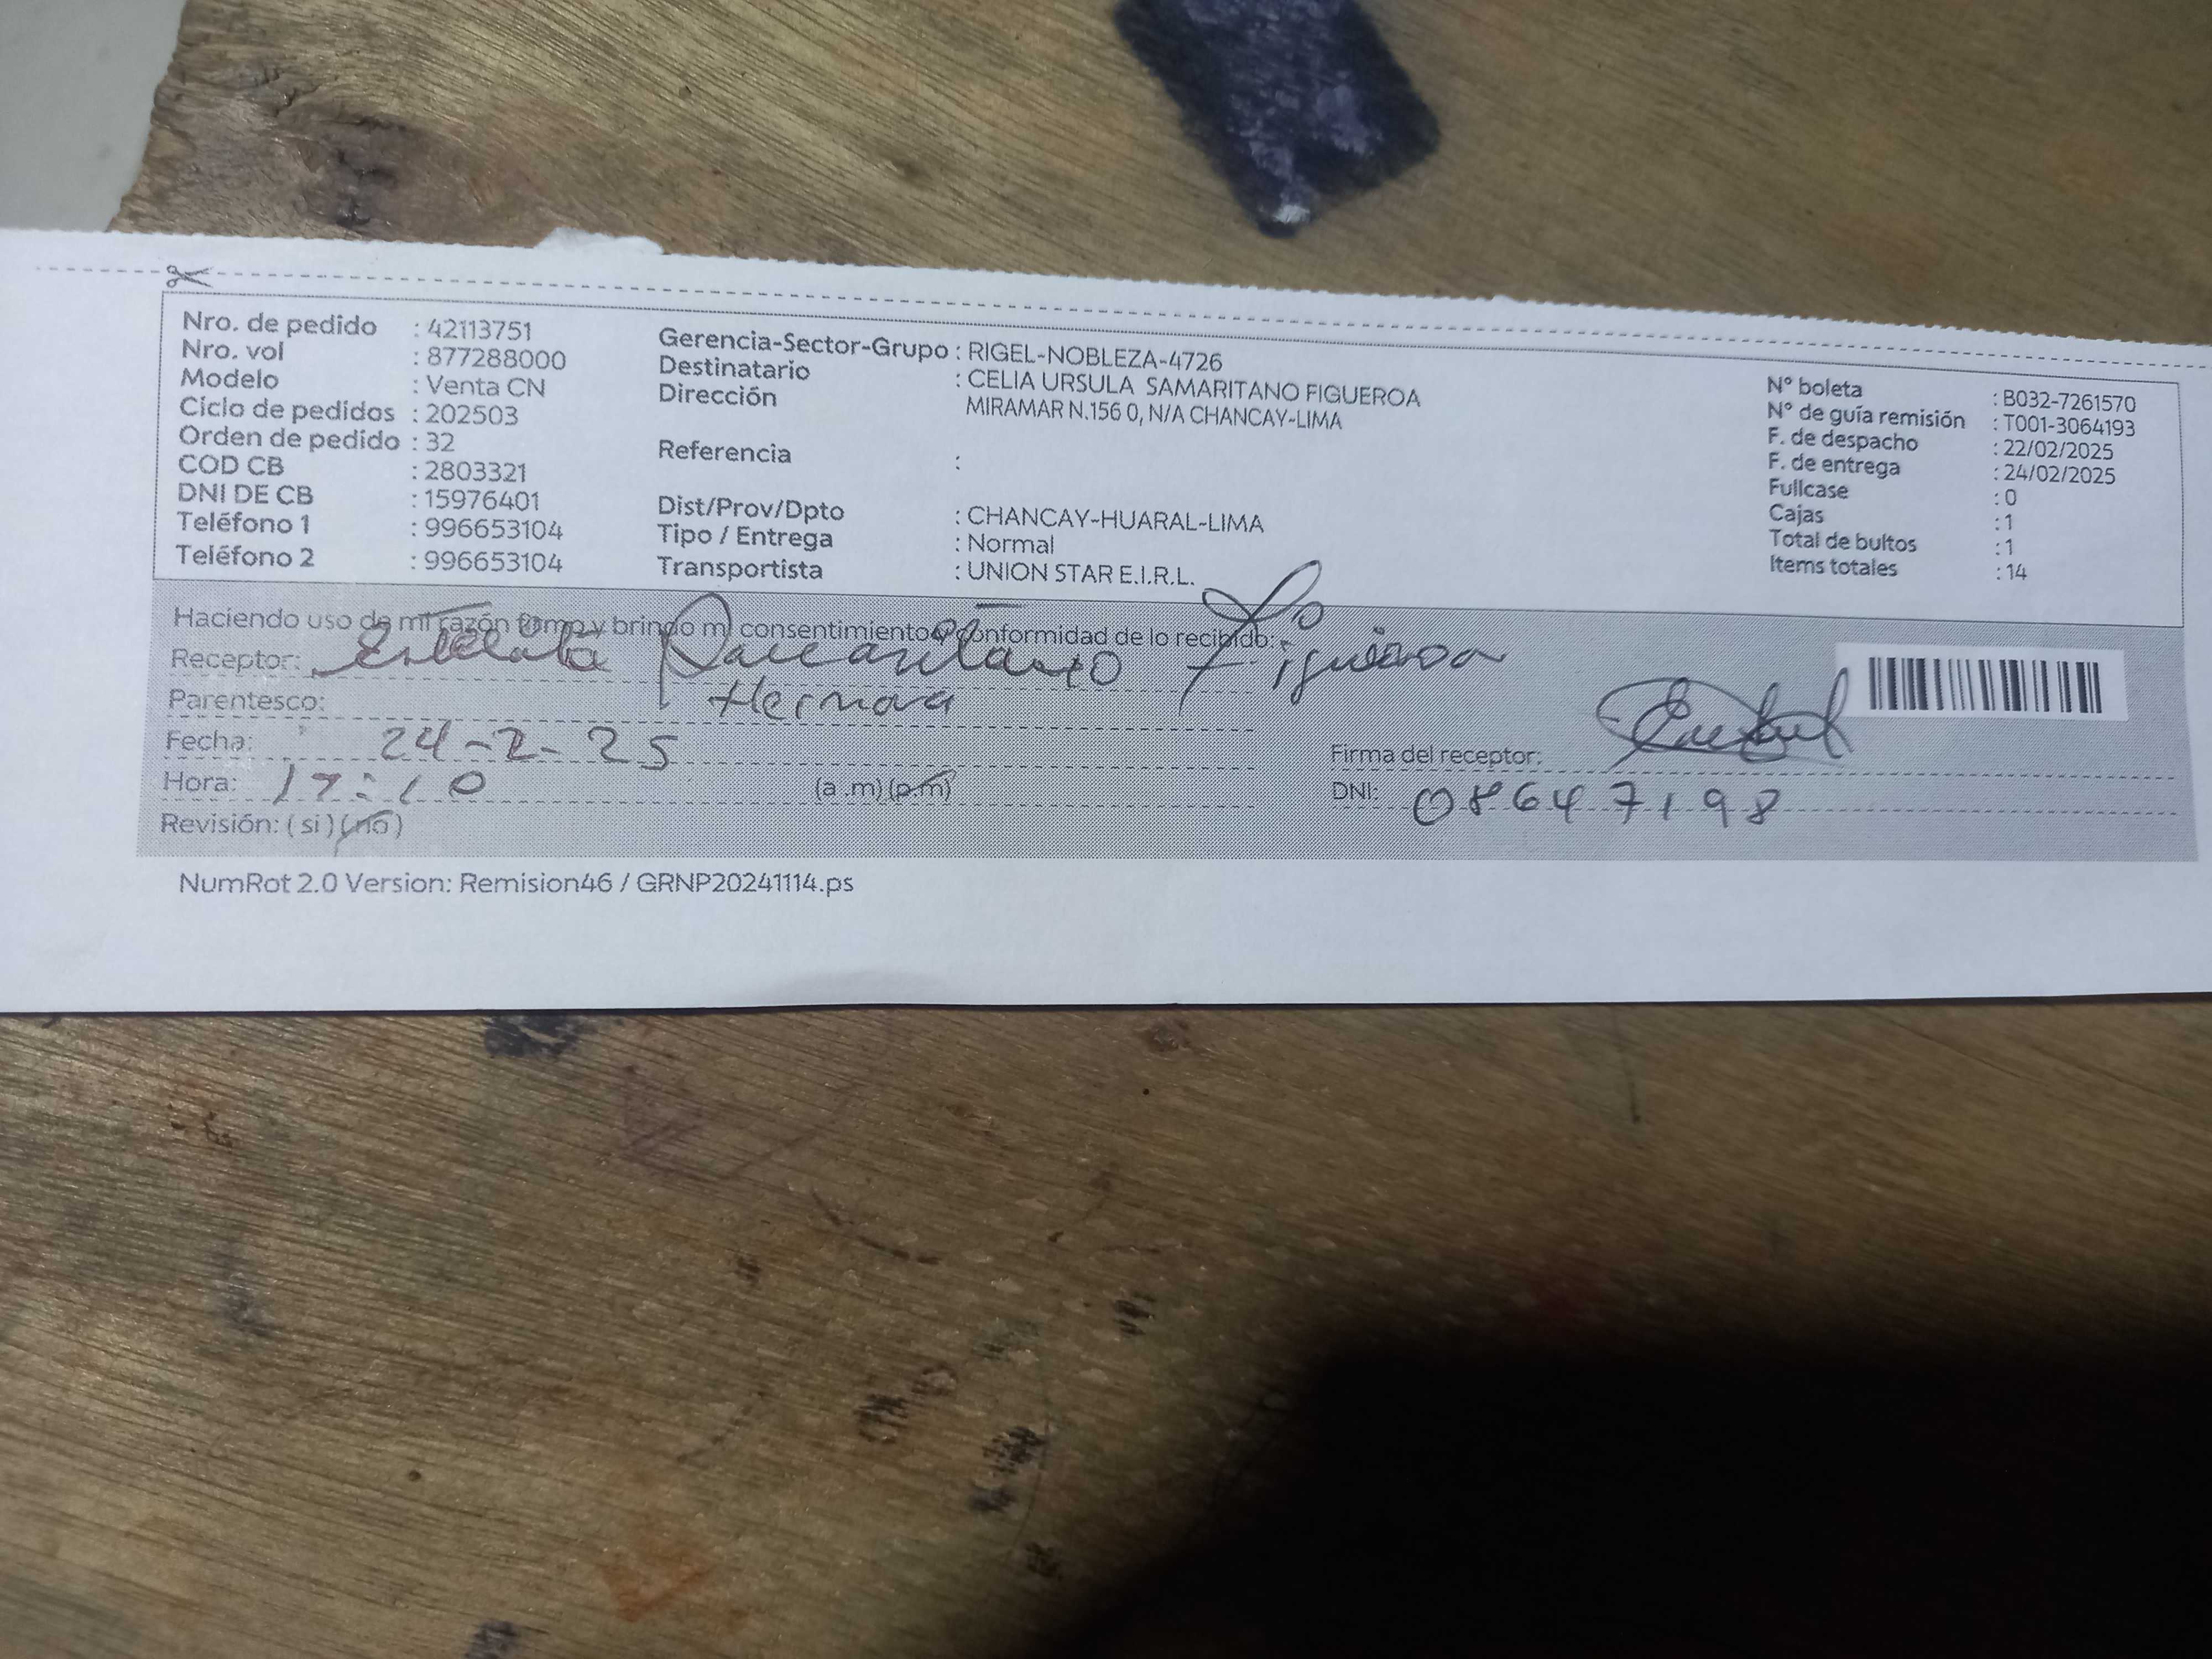 Nro. de pedido : 42113751
Nro. vol : 877288000
Modelo : Venta CN
Ciclo de pedidos : 202503
Orden de pedido : 32
COD CB : 2803321
DNI DE CB : 15976401
Teléfono 1 : 996653104
Teléfono 2 : 996653104
Gerencia-Sector-Grupo : RIGEL-NOBLEZA-4726
Destinatario : CELIA URSULA SAMARITANO FIGUEROA
Dirección MIRAMAR N.156 0, N/A CHANCAY-LIMA
Referencia :
Dist/Prov/Dpto : CHANCAY-HUARAL-LIMA
Tipo / Entrega : Normal
Transportista : UNION STAR E.I.R.L.
N° boleta : B032-7261570
N° de guía remisión : T001-3064193
F. de despacho : 22/02/2025
F. de entrega : 24/02/2025
Fullcase : 0
Cajas : 1
Total de bultos : 1
Items totales : 14
Haciendo uso de mi razón firmo y brindo mi consentimiento y conformidad de lo recibido:
Receptor: Samaritano Figueroa
Parentesco: Hermana
Fecha: 24-2-25
Hora: 17:10 (a .m) (p.m)
Revisión: ( si ) ( no )
Firma del receptor:
DNI: 08647198
NumRot 2.0 Version: Remision46 / GRNP20241114.ps